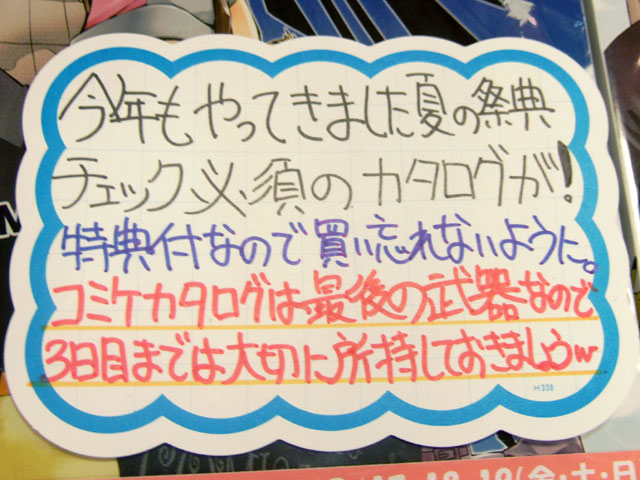 今年もやってきました夏の祭典
チェック必須のカタログが!
特典付なので買い忘れないように。
コミケカタログは最後の武器なので
3日目までは大切に所持しておきましょうw
H338
(金・土・日)